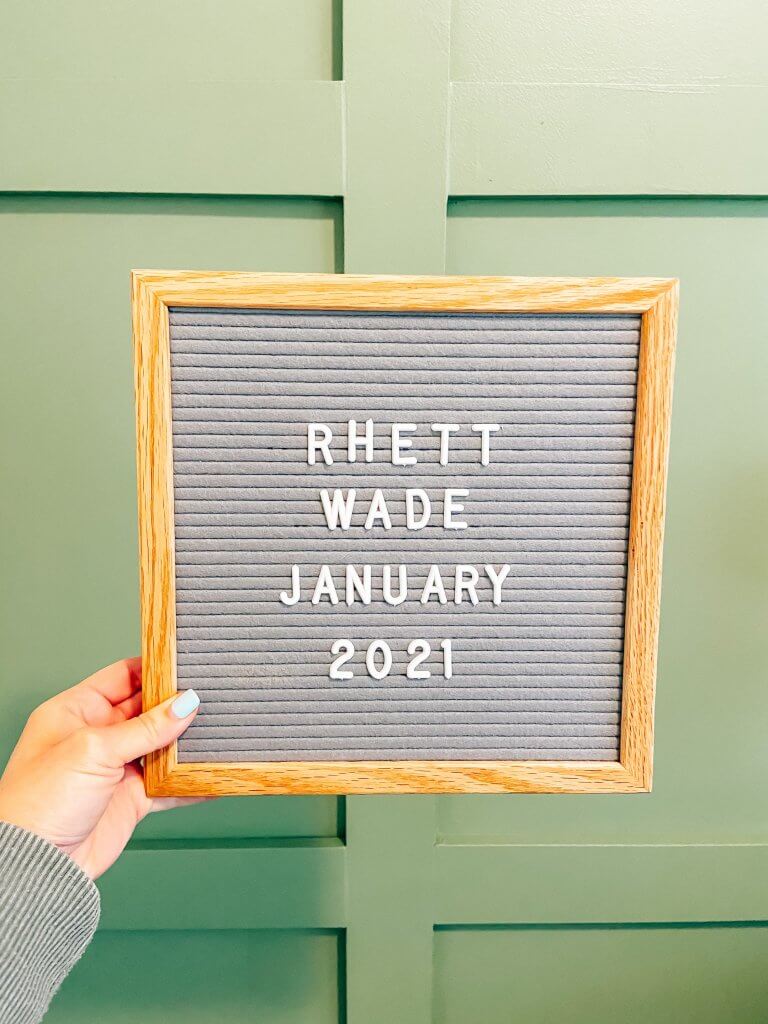 RHETT
WADE
JANUARY
2021